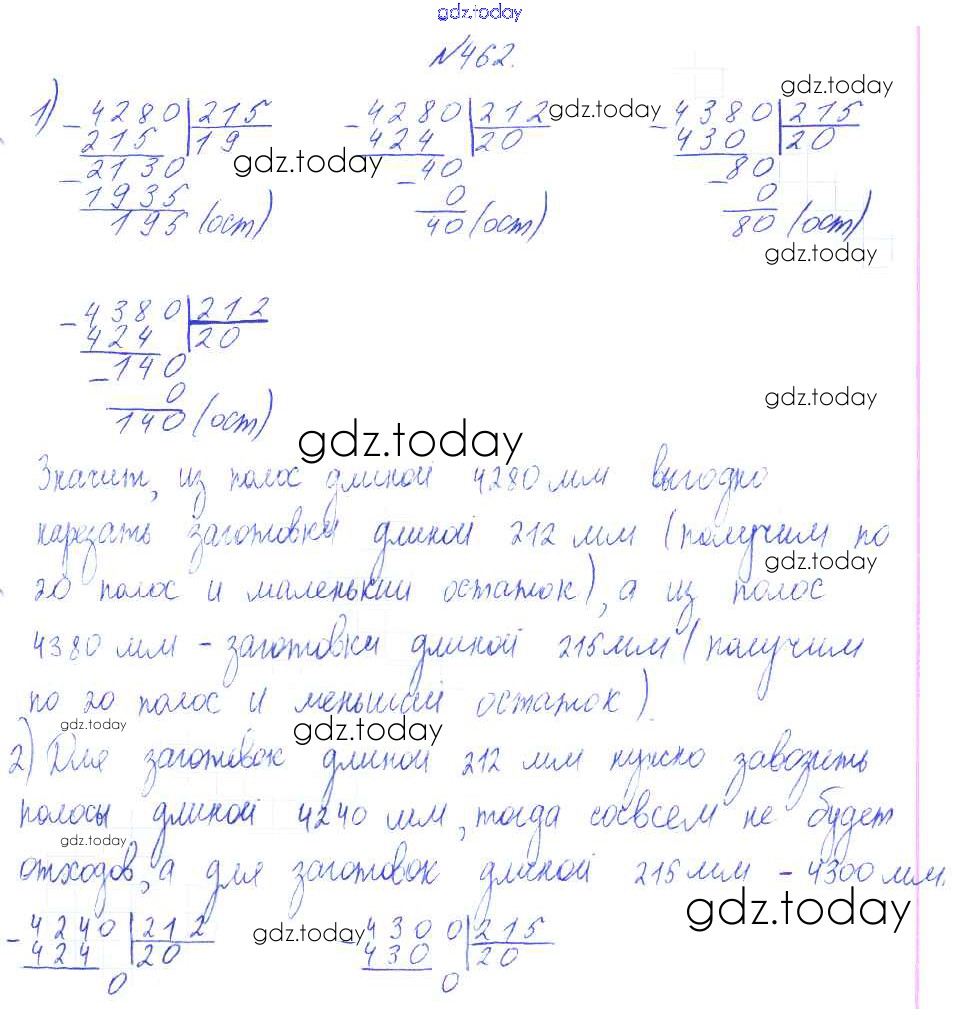 gdz.today
№462.
1) -4280 | 215   -4280 | 212 gdz.today   -4380 | 215 gdz.today
215 | 19 gdz.today   424 | 20   430 | 20
-2130   -40   -80
1935   0   0
195 (ост)   40 (ост)   80 (ост)
gdz.today
-4380 | 212
424 | 20
-140
0 gdz.today
140 (ост)
gdz.today
Значит, из полос длиной 4280 мм выгодно
нарезать заготовки длиной 212 мм (получим по
gdz.today
20 полос и маленький остаток), а из полос
4380 мм - заготовки длиной 215 мм (получим
по 20 полос и меньший остаток).
gdz.today gdz.today
2) Для заготовок длиной 212 мм нужно завозить
полосы длиной 4240 мм, тогда совсем не будет
gdz.today
отходов, а для заготовок длиной 215 мм - 4300 мм.
gdz.today
-4240 | 212 gdz.today -4300 | 215
424 | 20   430 | 20
0   0